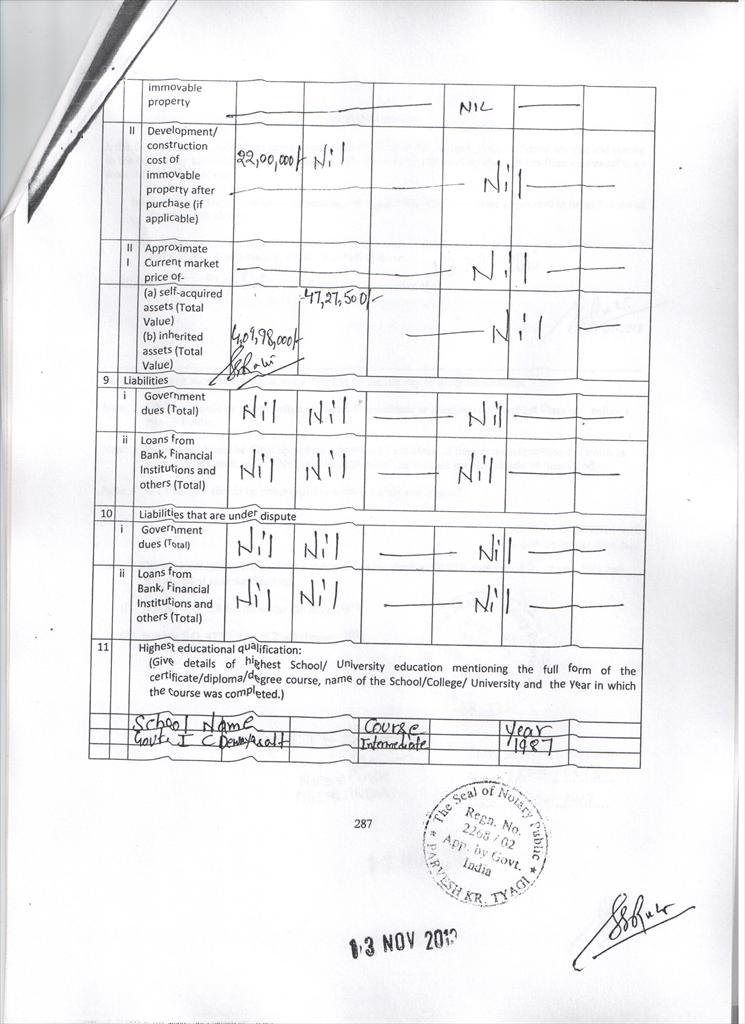 immovable
property NIL
II Development/
construction
cost of
immovable
property after
purchase (if
applicable)
22,00,000/- Nil Nil
II
I
Approximate
Current market
price of-
Nil
(a) self-acquired
assets (Total
Value)
47,27,500/-
(b) inherited
assets (Total
Value)
4,09,98,000/- Nil
9 Liabilities
i Government
dues (Total)
Nil Nil Nil
ii Loans from
Bank, Financial
Institutions and
others (Total)
Nil Nil Nil
10 Liabilities that are under dispute
i Government
dues (Total)
Nil Nil Nil
ii Loans from
Bank, Financial
Institutions and
others (Total)
Nil Nil Nil
11 Highest educational qualification:
(Give details of highest School/ University education mentioning the full form of the
certificate/diploma/degree course, name of the School/College/ University and the year in which
the course was completed.)
School Name Course Year
Govt. I C Intermediate 1987
287
The Seal of Notary Public
Regn. No.
2268 / 02
App. by Govt.
India
PARVESH KR. TYAGI
13 NOV 2013